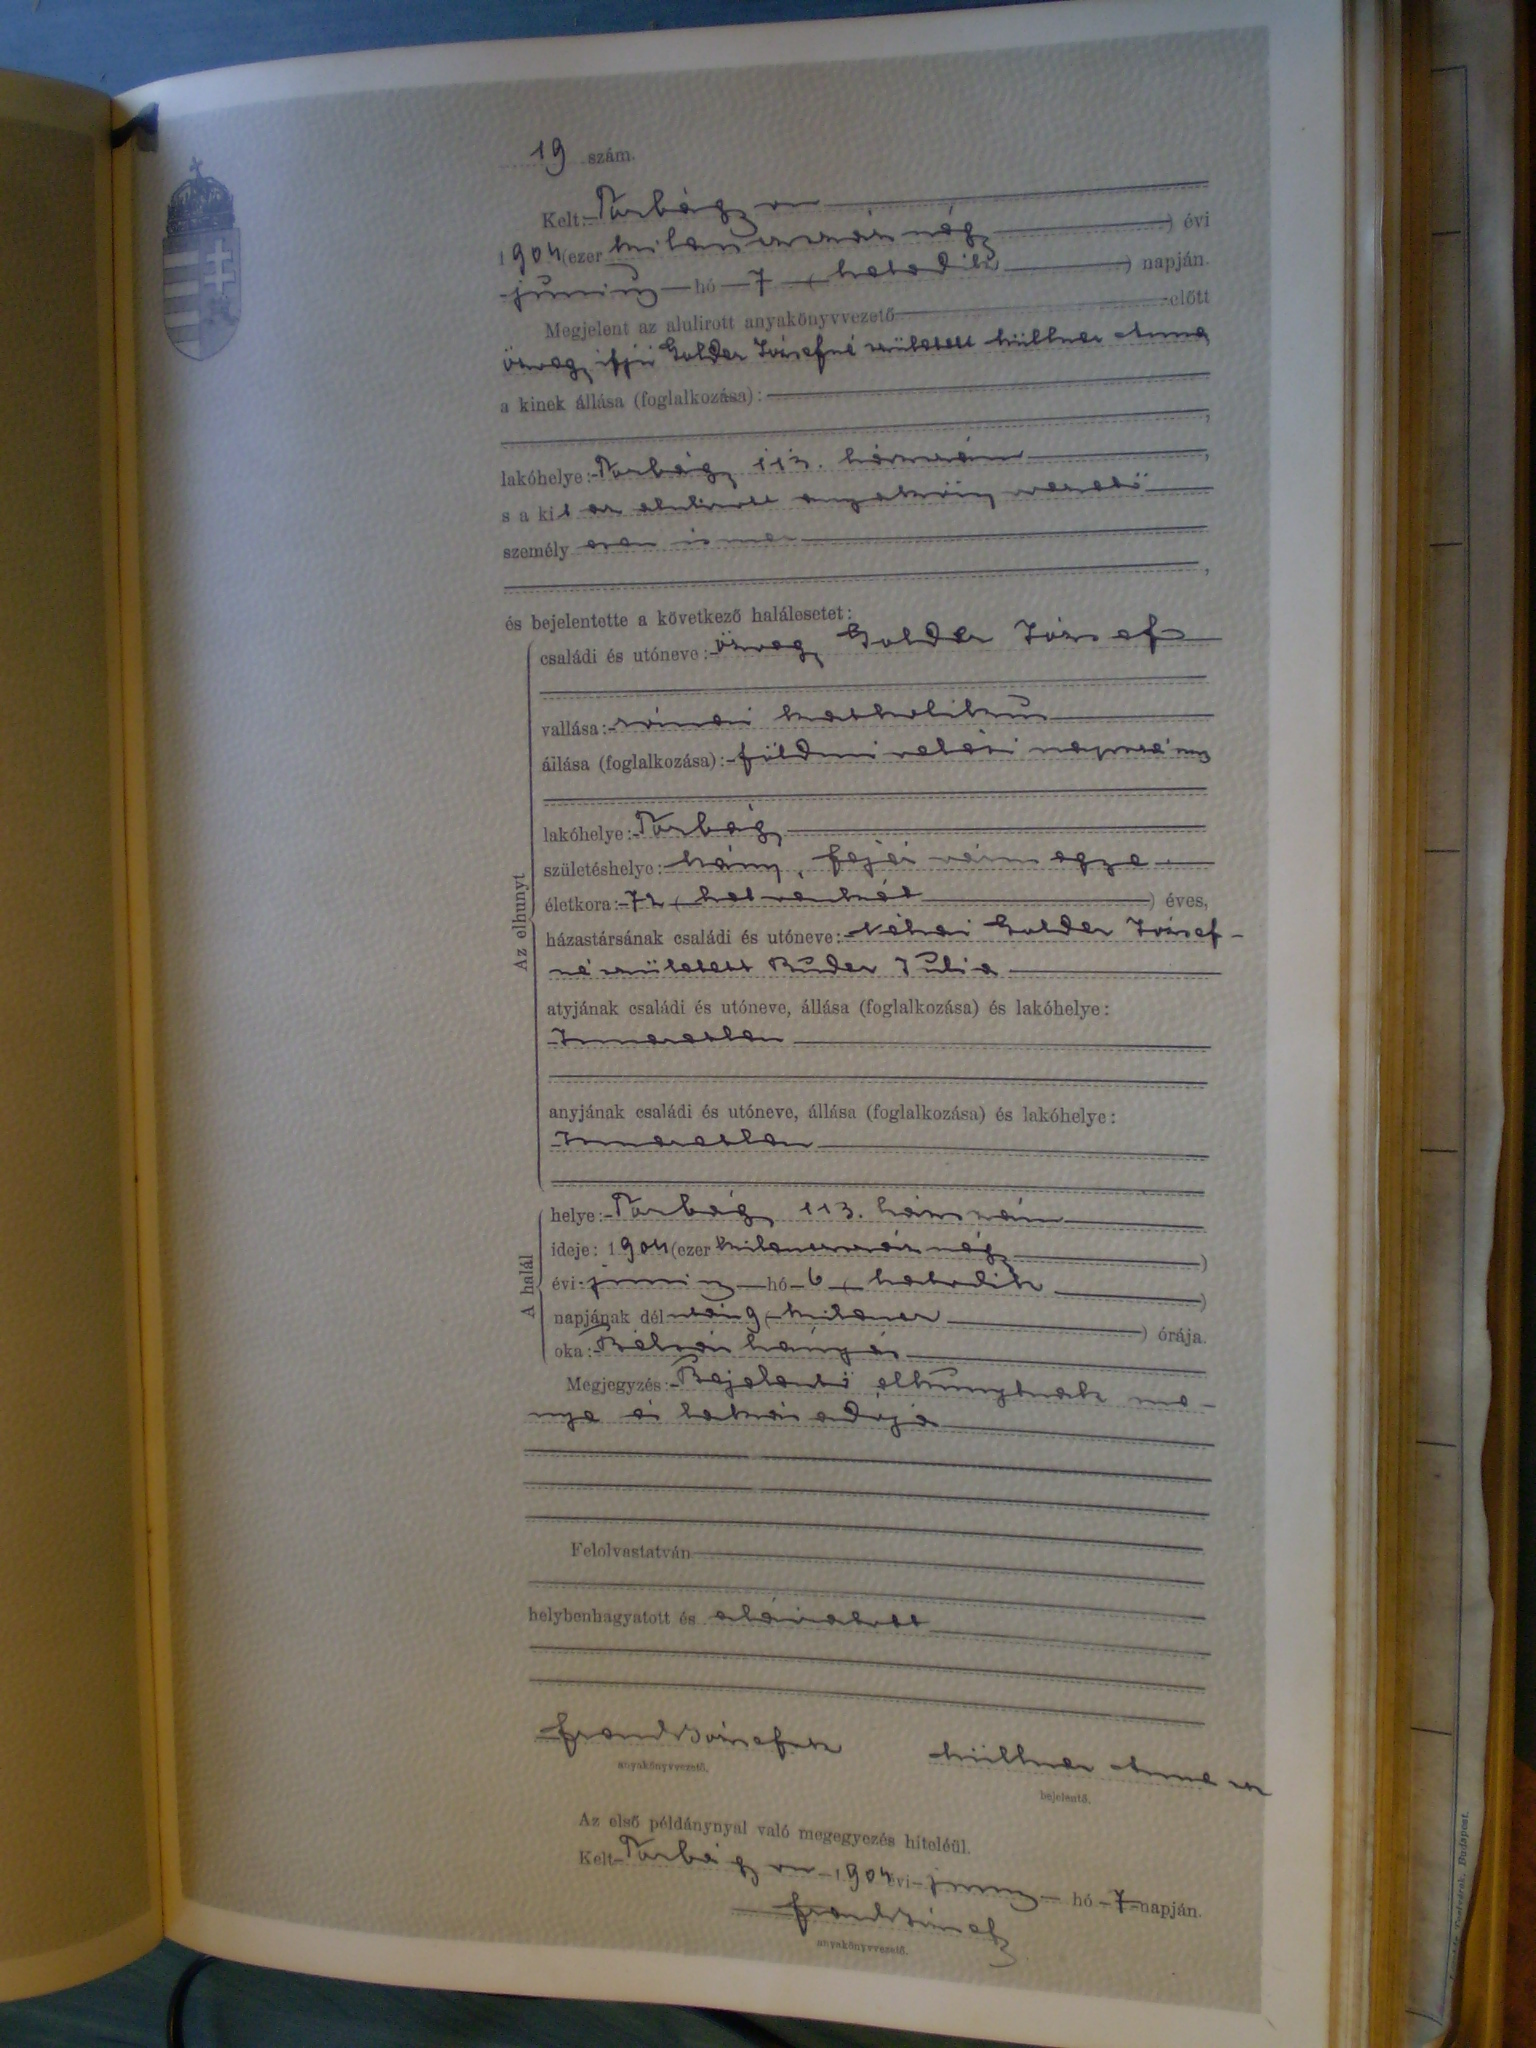 19 szám.
Kelt Torbágyon
1904 (ezer kilencszáz négy) évi
június hó 7 (hetedik) napján.
Megjelent az alulirott anyakönyvvezető előtt
özvegy ifjú Golder Józsefné született Hüllner Anna
a kinek állása (foglalkozása):
lakóhelye: Torbágy 113. házszám,
s a kit az alulirott anyakönyvvezető
személyesen ismer,
és bejelentette a következő halálesetet:
Az elhunyt
családi és utóneve: özvegy Golder József
vallása: római katholikus
állása (foglalkozása): földmivelési napszámos
lakóhelye: Torbágy
születéshelye: Mány, Fejér vármegye
életkora: 72 (hetvenkét) éves,
házastársának családi és utóneve: Néhai Golder József-
né született Buder Julia
atyjának családi és utóneve, állása (foglalkozása) és lakóhelye:
Ismeretlen
anyjának családi és utóneve, állása (foglalkozása) és lakóhelye:
Ismeretlen
A halál
helye: Torbágy 113. házszám
ideje: 1904 (ezer kilencszáz négy)
évi június hó 6 (hatodik)
napjának dél után 9 (kilencz) órája.
oka:
Megjegyzés: Bejelentő elhunytnak me-
nye és lakásadója
Felolvastatván
helybenhagyatott és aláiratott
anyakönyvvezető.
Hüllner Anna
bejelentő.
Az első példánynyal való megegyezés hiteléül.
Kelt Torbágyon 1904 évi június hó 7 napján.
anyakönyvvezető.